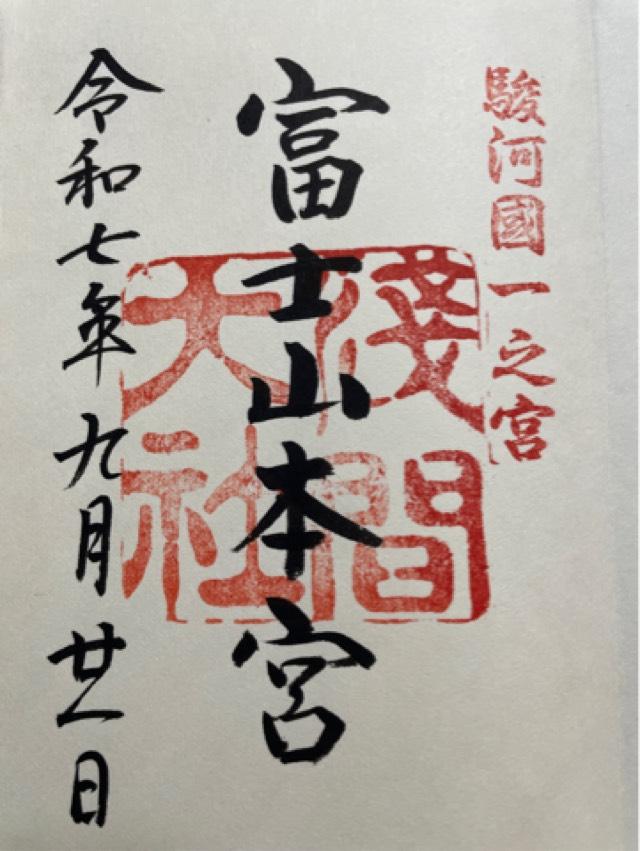 駿河國一之宮
富士山本宮
淺間大社
令和七年九月廿一日